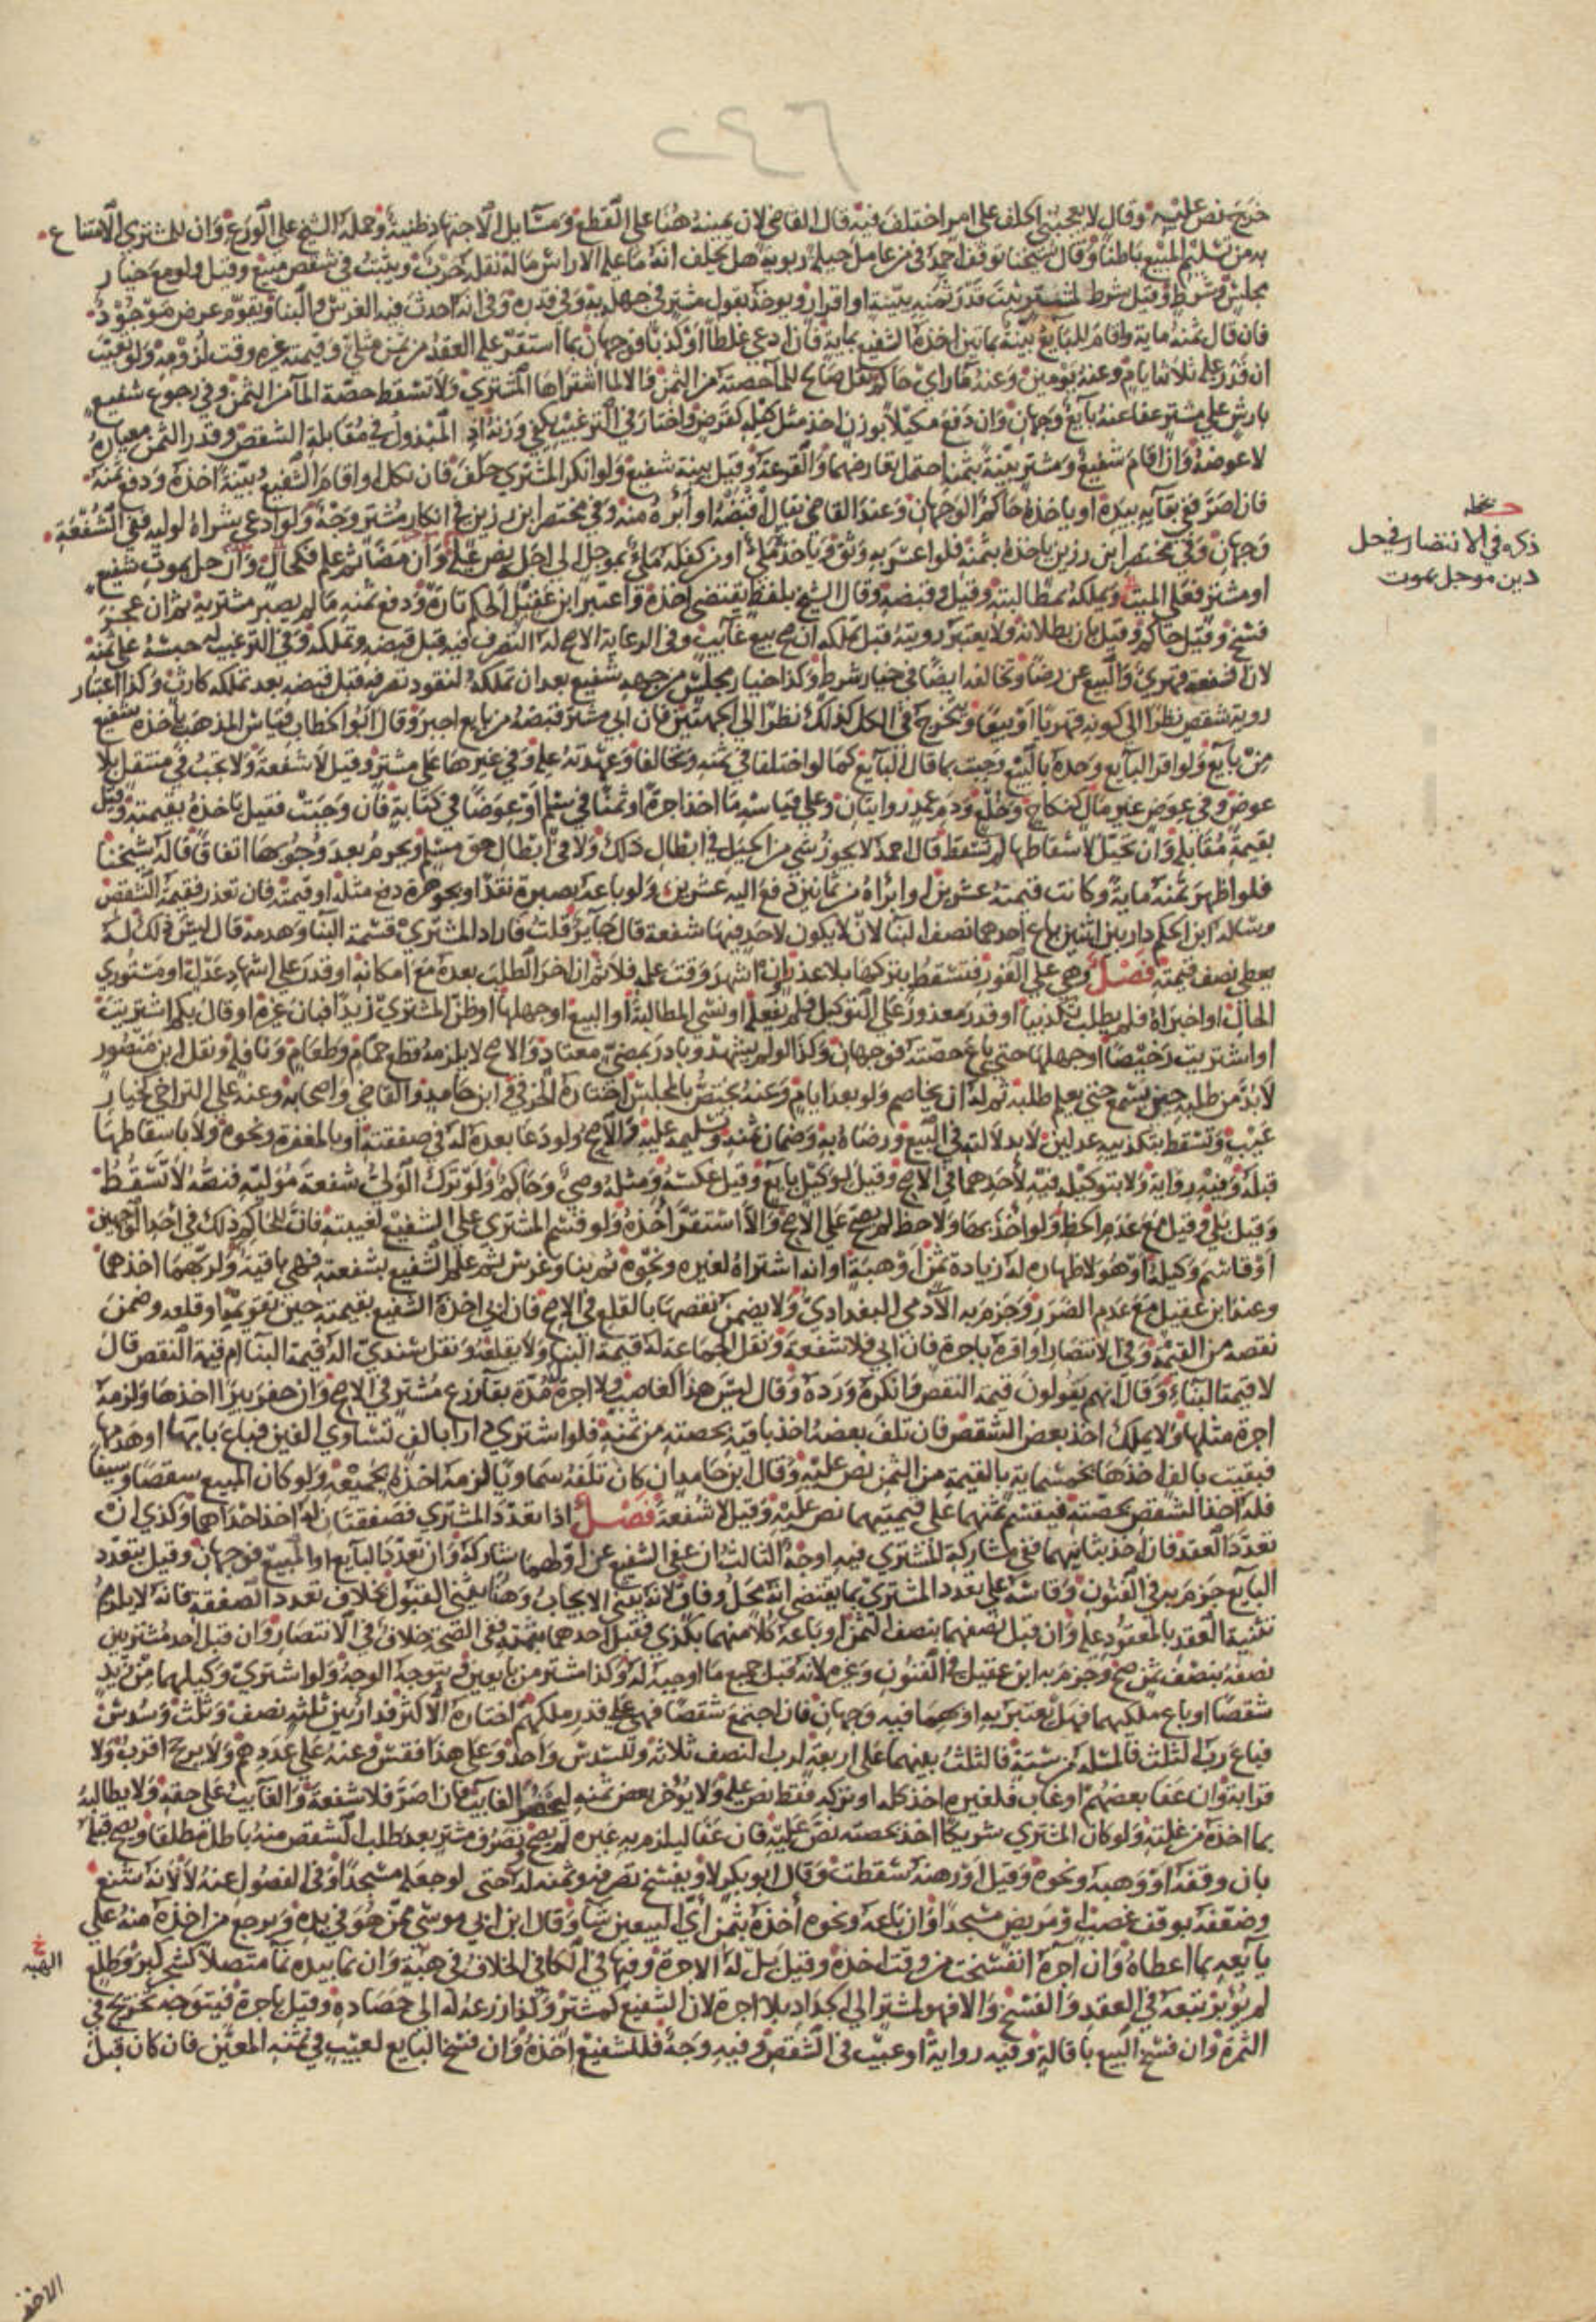 ٢٤٦
خرج نص عليه وقال لا يعجبني احلف على امر اختلف فيه قال القاضي لان يمينه هنا على القطع ومسايل الاجتهاد ظنية وحمله الشيخ على الورع وان للمشتري الامتناع
به من تسليم المبيع باطنا وقال شيخنا توقف احمد في من عامل حيلة ربوية هل يحلف انه ما عليه الا راس ماله نقله حرب ويثبت في شقص مبيع وقيل ولو مع خيار
مجلس وشرط وقيل شرط لمشتر يثبت قدر ثمنه ببينة او اقرار ويوخذ بقول مشتر في جهله به وفي قدره وفي انه احدث فيه الغرس والبنا ويقوم عرض موجود
فان قال ثمنه ماية واقام البايع بينة بمايتين اخذه الشفيع بماية فان ادعى غلطا او كذبا فوجهان بما استقر عليه العقد من ثمن مثلي وقيمة غيره وقت لزومه ولو تعيب
ان قدر عليه ثلاثة ايام وعنه يومين وعنه ما راى حاكم نقل صالح للما حصته من الثمن والا لما اشتراها المشتري ولا تسقط حصة الما من الثمن وفي رجوع شفيع
بارش على مشتر عفا عنه بايع وجهان وان دفع مكيلا بوزن اخذ مثل كيله كقرض واختار في الترغيب يكفي وزنه اذ المبذول في مقابلة الشقص وقدر الثمن معياره
لا عوضه وان اقام شفيع ومشتر بينة بثمن احتمل تعارضهما والقرعة وقيل بينة شفيع ولو انكر المشتري حلف فان نكل او اقام الشفيع بينة اخذه ودفع ثمنه
فان اصر ففي بقايه بيده او ياخذه حاكم الوجهان وعند القاضي يقال اقبضه او ابره منه وفي مختصر ابن رزين في انكار مشتر وجه ولو ادعى شراه لوليه ففي الشفعة
وجهان وفي مختصر ابن رزين ياخذه بثمنه فلو اعسر به وثق وياخذ ملي او من كفله ملي بموجل الى اجل نص عليه وان مضا ثم علم فكحال وان حل بموت شفيع
او مشتر فعلى الميت ويملكه بمطالبته وقيل وقبضه وقال الشيخ بلفظ يقتضي اخذه واعتبر ابن عقيل الحكم تارة ودفع ثمنه ما لم يصبر مشتريه ثم ان عجز
فسخ وقيل حاكم وقيل بان بطلانه ولا يعتبر رويته قبل تملكه ان صح بيع غايب وفي الرعاية الاصح له التصرف فيه قبل قبضه وتملكه وفي الترغيب له حبسه على ثمنه
لان الشفعة قهري والبيع عن رضا وتخالفه ايضا في خيار شرط وكذا خيار مجلس من جهة شفيع بعد ان تملكه لنفوذ تصرفه قبل قبضه بعد تملكه كارث وكذا اعتبار
روية شقص نظرا الى كونه قهريا او بيعا وتخرج في الكل كذلك نظرا الى الجهتين فان ابى مشتر قبضه من بايع اجبر وقال ابو الخطاب قياس المذهب ياخذه شفيع
من بايع ولو اقر البايع وحده بالبيع وجبت بما قال البايع كما لو اختلفا في ثمنه وتحالفا وعهدته عليه وفي غيرها على مشتر وقيل لا شفعة ولا تجب في منتقل بلا
عوض وفي عوض غير مال كنكاح وخلع ودم عمد روايتان وعلى قياسه ما اخذ اجرة او ثمنا في سلم او عوضا في كتابة فان وجبت فقيل ياخذه بقيمته وقيل
بقيمة مقابله وان تحيل لاسقاطها لم تسقط قال احمد لا يجوز شي من الحيل في ابطال ذلك ولا في ابطال حق مسلم ويحرم بعد وجوبها اتفاقا قاله شيخنا
فلو اظهر ثمنه ماية وكانت قيمته عشرين او ابراه من ثمانين دفع اليه عشرين ولو باعه بصبرة نقدا وبجوهرة دفع مثله او قيمته فان تعذر فقيمة الشقص
وساله ابن الحكم دار بين اثنين باع احدهما نصف البنا لان لا يكون لاحد فيها شفعة قال جايز قلت فاراد المشتري قسمة البنا وهدمه قال ليس ذلك له
يعطى نصف قيمته فصل وهي على الفور فتسقط بتركها بلا عذر بان اشهد وقت علمه فلا ثم ان اخر الطلب بعده مع امكانه او قدر على اشهاد عدل او مستوري
الحال او اخبراه فلم يطلب تكذيبا او قدر معذور على التوكيل فلم يفعله او نسي المطالبة او البيع او جهلها او ظن المشتري زيدا فبان غيره او قال بكم اشتريت
او اشتريت رخيصا او جهلها حتى باع حصته فوجهان وكذا لو لم يشهد وبادر بمضي معتاد والاصح لا يلزمه قطع حمام وطعام ونافلة ونقل ابن منصور
لا بد من طلبه حين يسمع حتى يعلم طلبه ثم له ان يخاصم ولو بعد ايام وعنه يختص بالمجلس اختاره الخرقي وابن حامد والقاضي واصحابه وعنه على التراخي كخيار
عيب وتسقط بتكذيبه عدلين لا بدلالته في البيع ورضاه به وضمان ثمنه وتسليمه عليه في الاصح ولو دعا بعده له في صفقته او بالمغفرة ونحوه ولا باسقاطها
قبله وفيه رواية ولا بتوكيله فيه لاحدهما في الاصح وقيل لوكيل بايع وقيل عكسه ومثله وصي وحاكم ولو ترك الولي شفعة موليه فنصه لا تسقط
وقيل بلى وقيل مع عدم الحظ ولو اخذ بها ولا حظ لم يصح على الاصح والا استقر اخذه ولو قسم المشتري على الشفيع لغيبته فان للحاكم ذلك في احد الوجهين
او قاسم وكيله او هو لاظهاره له زيادة ثمن او هبة او انه اشتراه لغيره ونحوه ثم بنا وغرس ثم علم الشفيع بشفعته فهي باقية ولربهما اخذهما
وعند ابن عقيل مع عدم الضرر وجزم به الادمي البغدادي ولا يضمن نقصها بالقلع في الاصح فان ابى اخذه الشفيع بقيمته حين تقويمه او قلعه وضمن
نقصه من القيمة وفي الانتصار او اقره باجرة فان ابى فلا شفعة ونقل الجماعة له قيمة البنا ولا يقلعه ونقل سندي اله قيمة البنا ام قيمة النقص قال
لا قيمة البناء وقال انهم يقولون قيمة النقص وانكره ورده وقال ليس هذا كغاصب ولا اجرة مدة بقا زرع مشتر في الاصح وان حفر بيرا اخذها ولزمه
اجرة مثلها ولا يملك اخذ بعض الشقص فان تلف بعضه اخذ باقيه بحصته من ثمنه فلو اشترى دارا بالف تساوي الفين فباع بابها او هدمها
فبقيت بالف اخذها بخمسماية بالقيمة من الثمن نص عليه وقال ابن حامد ان كان تلفه سماويا لزمه اخذه بجميعه ولو كان المبيع شقصا وسيفا
فله اخذ الشقص بحصته فيقسم ثمنهما على قيمتيهما نص عليه وقيل لا شفعة فصل اذا تعدد المشتري فصفقتان له اخذ احداهما وكذى ان
تعدد العقد فان اخذ بثانيهما ففي مشاركة المشتري فيه اوجه الثالث ان عفى الشفيع عن اولهما شاركه وان تعدد البايع او المبيع فوجهان وقيل بتعدد
البايع جزم به في الفنون وقاسه على تعدد المشتري بما يقتضي انه محل وفاق لانه يثني الايجاب وهنا يثني القبول بخلاف تعدد الصفقة فانه لا يلزم
تثنية العقد بالمعقود عليه وان قبل نصفهما بنصف الثمن او باعه كلا منهما بكذى فقبل احدهما بثمنه ففي الصحة خلاف في الانتصار وان قبل احد مشتريين
نصفه بنصف ثمن صح وجزم به ابن عقيل في الفنون وغيره لانه قبل جميع ما اوجبه له وكذا مشتر من بايعين ويتوجه الوجه ولو اشترى وكيلهما من زيد
شقصا او باع ملكيهما فهل يعتبر به او بهما فيه وجهان فان اجتمع شفعا فهي على قدر ملكهم اختاره الاكثر فدار بين ثلاثة نصف وثلث وسدس
فباع رب الثلث فالمسلة من ستة فالثلث بينهما على اربعة لرب النصف ثلاثة وللسدس واحد وعلى هذا فقس وعنه على عددهم ولا يرجح اقرب ولا
قرابة وان عفا بعضهم او غاب فلغيره اخذ كله او تركه فقط نص عليه ولا يؤخر بعض ثمنه ليحضر الغايب فان اصر فلا شفعة والغايب على حقه ولا يطالبه
بما اخذه من غلته ولو كان المشتري شريكا اخذ بحصته نص عليه فان عفا ليلزم به غيره لم يصح وتصرف مشتر بعد طلب الشقص منه باطل مطلقا ويصح قبله
بان وقفه او وهبه ونحوه وقيل او رهنه سقطت وقال ابو بكر لا ويفسخ تصرفه وثمنه له حتى لو جعله مسجدا وفي الفصول عنه لا لانه شفيع
وضعفه بوقف غصب او مريض مسجدا وان باعه ونحوه اخذه بثمن اي البيعين شا وقال ابن ابي موسى ممن هو في يده ويرجع من اخذه منه على
بايعه بما اعطاه وان اجره انفسخت من وقت اخذه وقيل بل له الاجرة وفيها في الكافي الخلاف في هبة وان نما بيده نما متصلا كشجر كبر وطلع
لم يؤبر تبعه في العقد والفسخ والا فهو لمشتر الى الجداد بلا اجرة لان الشفيع كمشتر وكذا زرعه له الى حصاده وقيل باجرة فيتوجه تخريج في
الثمرة وان فسخ البيع باقالة وفيه رواية او عيب في الشقص وفيه وجه فللشفيع اخذه وان فسخ البايع لعيب في ثمنه المعين فان كان قبل
ذكره في الانتصار في حل
دين موجل بموت
خ
الهبه
الاخذ